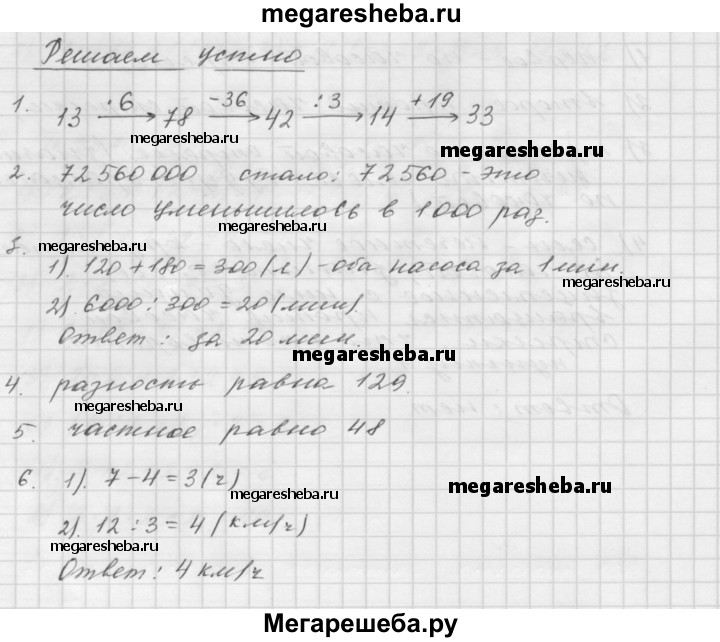 megaresheba.ru
Решаем устно
1. 13 :6 → 78 -36 → 42 :3 → 14 +19 → 33
megaresheba.ru
megaresheba.ru
megaresheba.ru
2. 72 560 000 стало: 72 560 - это
число уменьшилось в 1000 раз.
megaresheba.ru
3. megaresheba.ru
1). 120 + 180 = 300 (л) - оба насоса за 1 мин.
megaresheba.ru
2). 6000 : 300 = 20 (мин).
Ответ: за 20 мин.
megaresheba.ru
4. разность равна 129.
megaresheba.ru
5. частное равно 48
6. 1). 7 - 4 = 3 (ч)
megaresheba.ru
megaresheba.ru
2). 12 : 3 = 4 (км/ч)
megaresheba.ru
Ответ: 4 км/ч
Мегарешеба.ру